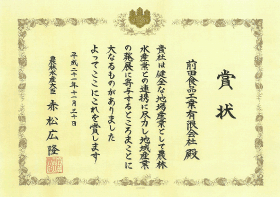 賞状
前田食品工業有限会社 殿
貴社は健全な地場産業として農林
水産業との連携に尽力し地域産業
の発展に寄与するところまことに
大なるものがありました
よってここにこれを賞します
平成二十一年十一月二十日
農林水産大臣 赤松広隆